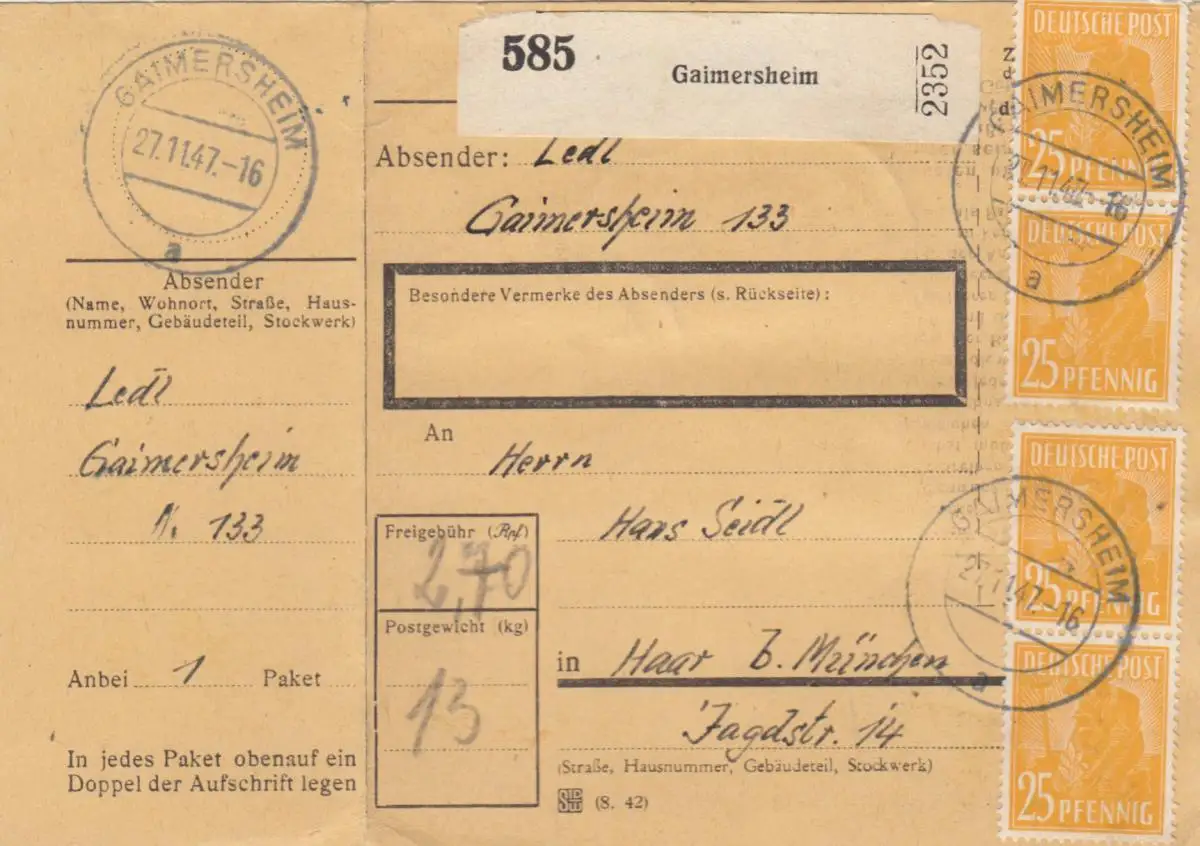 GAIMERSHEIM
27.11.47.-16
a
Absender
(Name, Wohnort, Straße, Haus-
nummer, Gebäudeteil, Stockwerk)
Ledl
Gaimersheim
N. 133
Anbei 1 Paket
In jedes Paket obenauf ein
Doppel der Aufschrift legen
585
Gaimersheim
2352
Absender: Ledl
Gaimersheim 133
Besondere Vermerke des Absenders (s. Rückseite):
An
Herrn
Hans Seidl
Freigebühr (Rpf)
2,70
Postgewicht (kg)
13
in Haar b. München
Jagdstr. 14
(Straße, Hausnummer, Gebäudeteil, Stockwerk)
(8. 42)
Z
d
d
DEUTSCHE POST
25
GAIMERSHEIM
27.11.47.-16
a
DEUTSCHE POST
25 PFENNIG
DEUTSCHE POST
25 PFENNIG
GAIMERSHEIM
27.11.47.-16
a
DEUTSCHE POST
25 PFENNIG